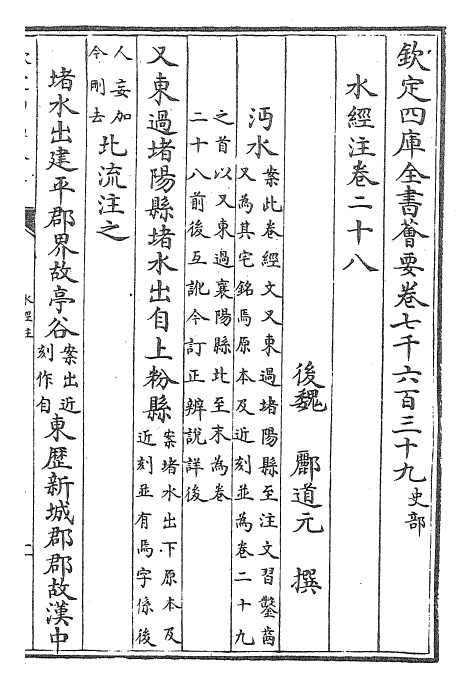 欽定四庫全書薈要卷七千六百三十九史部
水經注卷二十八
後魏 酈道元 撰
沔水案此卷經文又東過堵陽縣至注文習鑿齒
又為其宅銘焉原本及近刻並為卷二十九
之首以又東過襄陽縣北至末為卷
二十八前後互訛今訂正辨說詳後
又東過堵陽縣堵水出自上粉縣案堵水出下原本及
近刻並有焉字係後
人妄加
今刪去北流注之
堵水出建平郡界故亭谷案出近
刻作自東歷新城郡郡故漢中
水經注